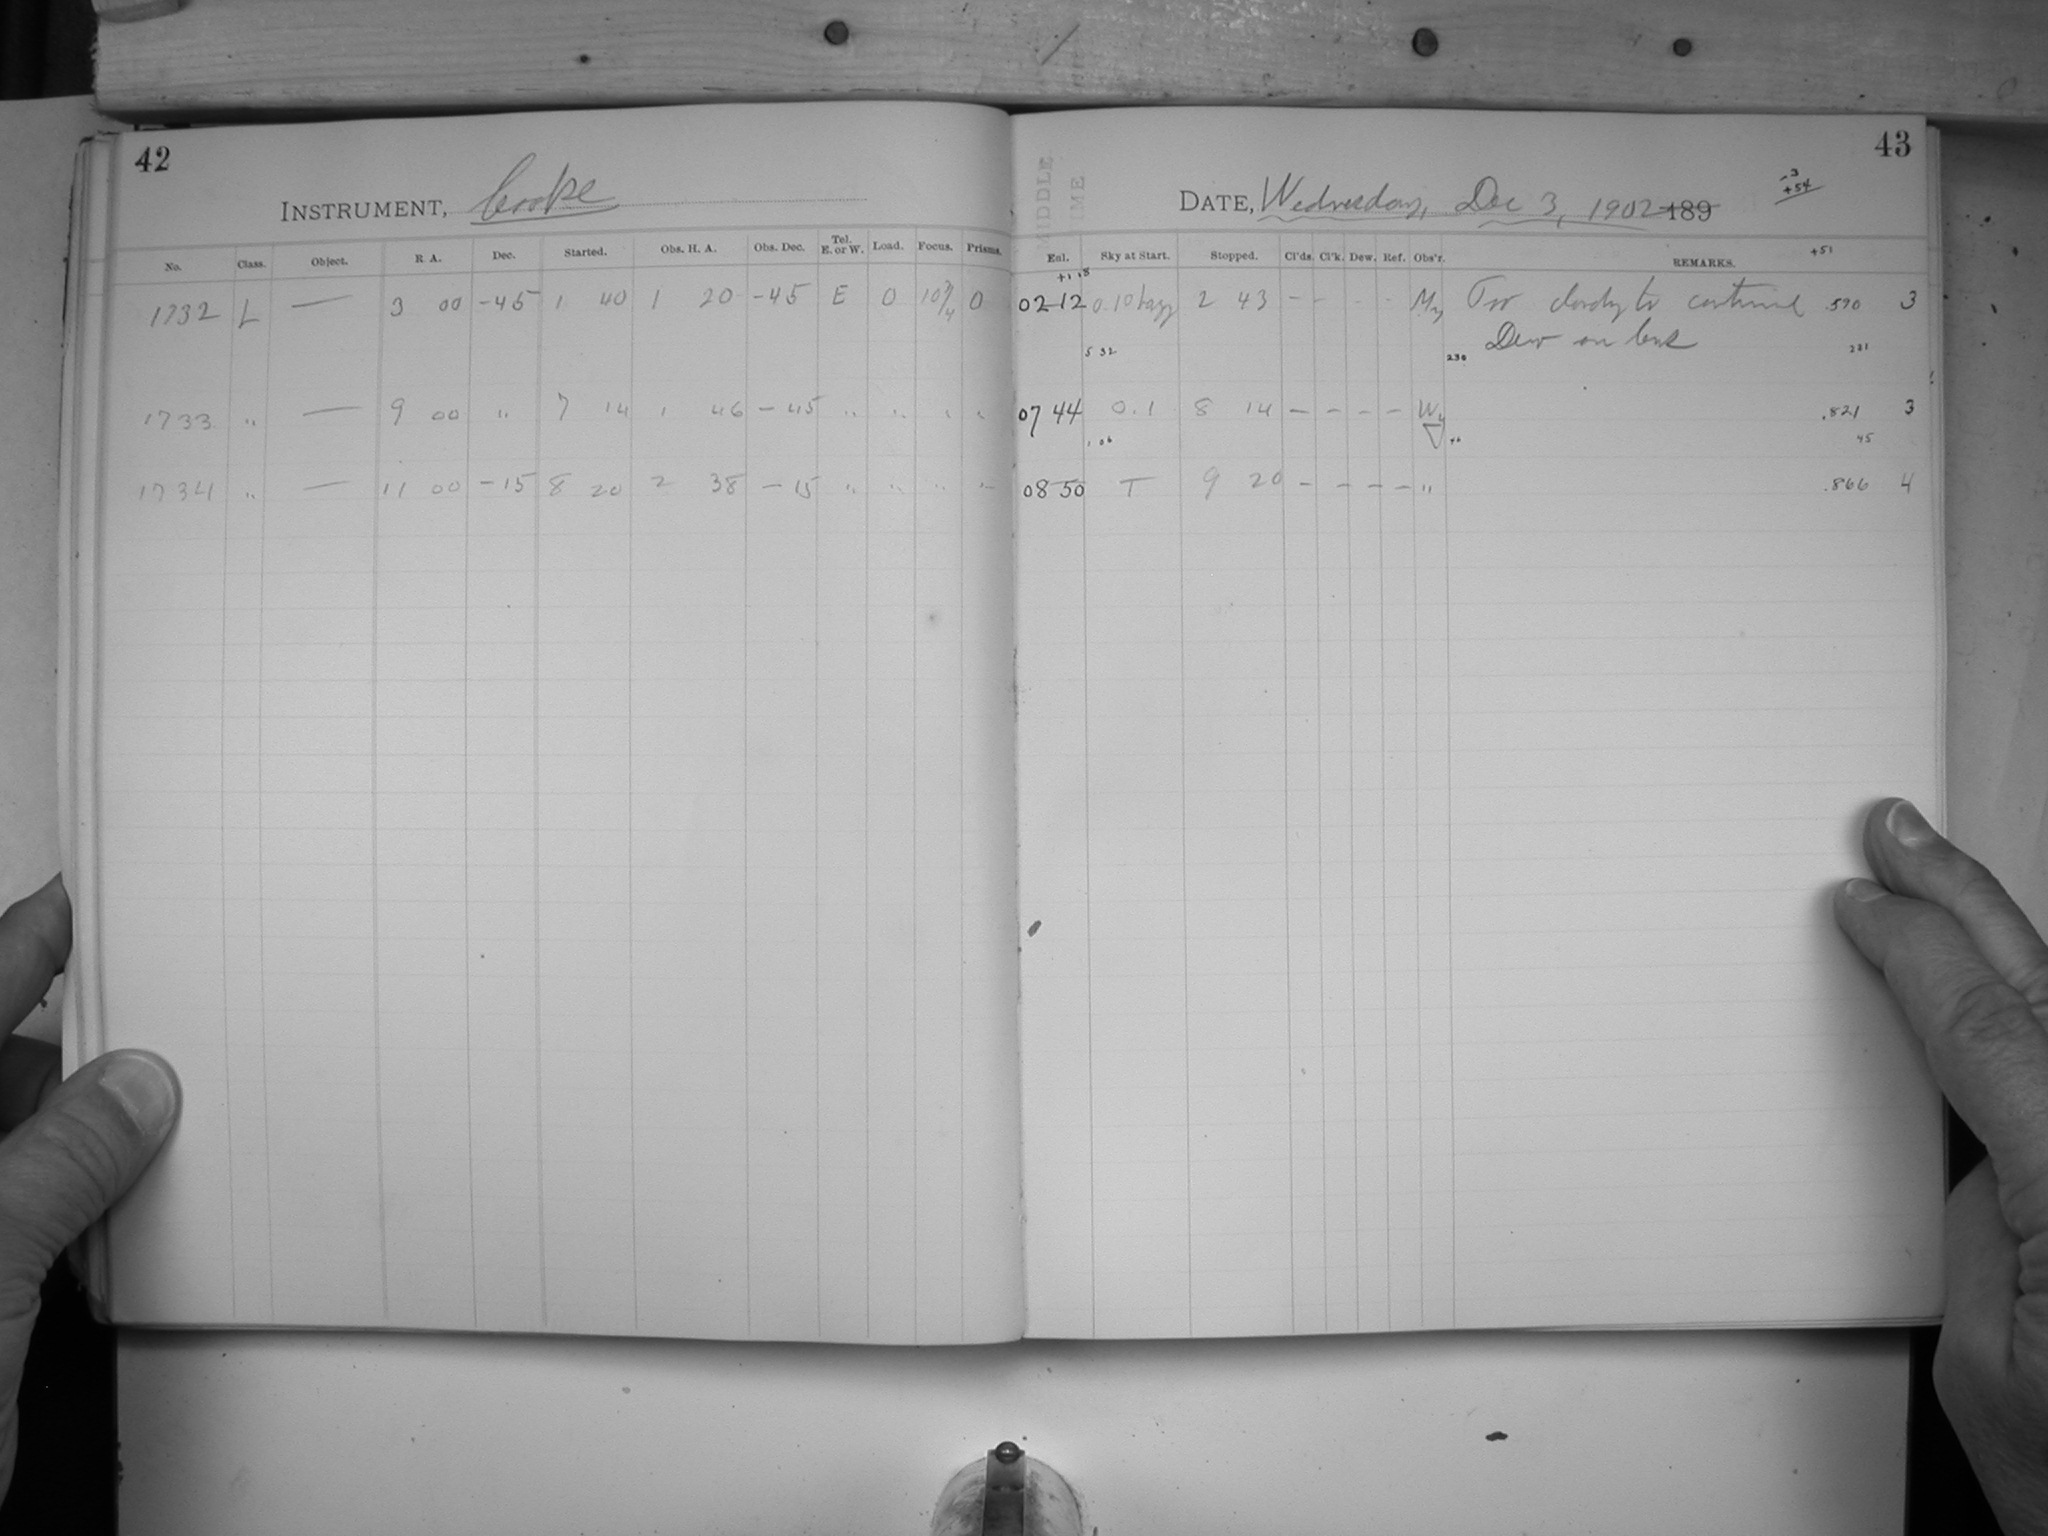 42
INSTRUMENT, Cooke
No. Class. Object. R A. Dec. Started. Obs. H. A. Obs. Dec. Tel. E. or W. Load. Focus. Prisms.
1732 L — 3 00 -45 1 40 1 20 -45 E 0 10 3/4 0
1733 " — 9 00 " 7 14 1 46 -45 " " " "
1734 " — 11 00 -15 8 20 2 38 -15 " " " "
43
MIDDLE
IME
-3
+54
DATE, Wednesday, Dec 3, 1902 189
+51
Enl. Sky at Start. Stopped. Cl'ds. Cl'k. Dew. Ref. Obs'r. REMARKS.
+1 18
02 12 0.10 hazy 2 43 - - - - My Too cloudy to continue .570 3
5 32 230 Dew on lens 231
07 44 0.1 8 14 - - - - Wy .821 3
1 06 45
08 50 T 9 20 - - - - " .866 4